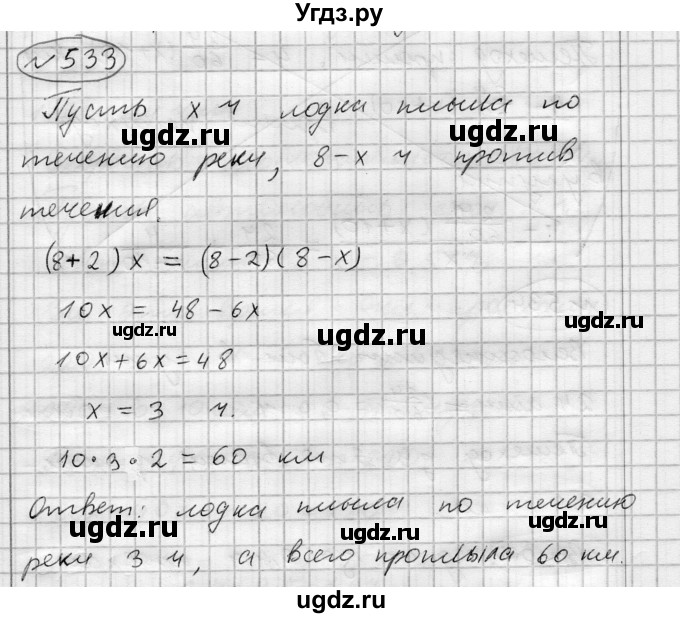 Угдз.ру
№ 533
Пусть x ч лодка плыла по
ugdz.ru ugdz.ru
течению реки, 8-x ч против
течения.
(8+2)x = (8-2)(8-x)
10x = 48-6x
ugdz.ru ugdz.ru
10x+6x=48
x = 3 ч.
10·3·2 = 60 км
Ответ: лодка плыла по течению
ugdz.ru ugdz.ru
реки 3 ч, а всего проплыла 60 км.
ugdz.ru